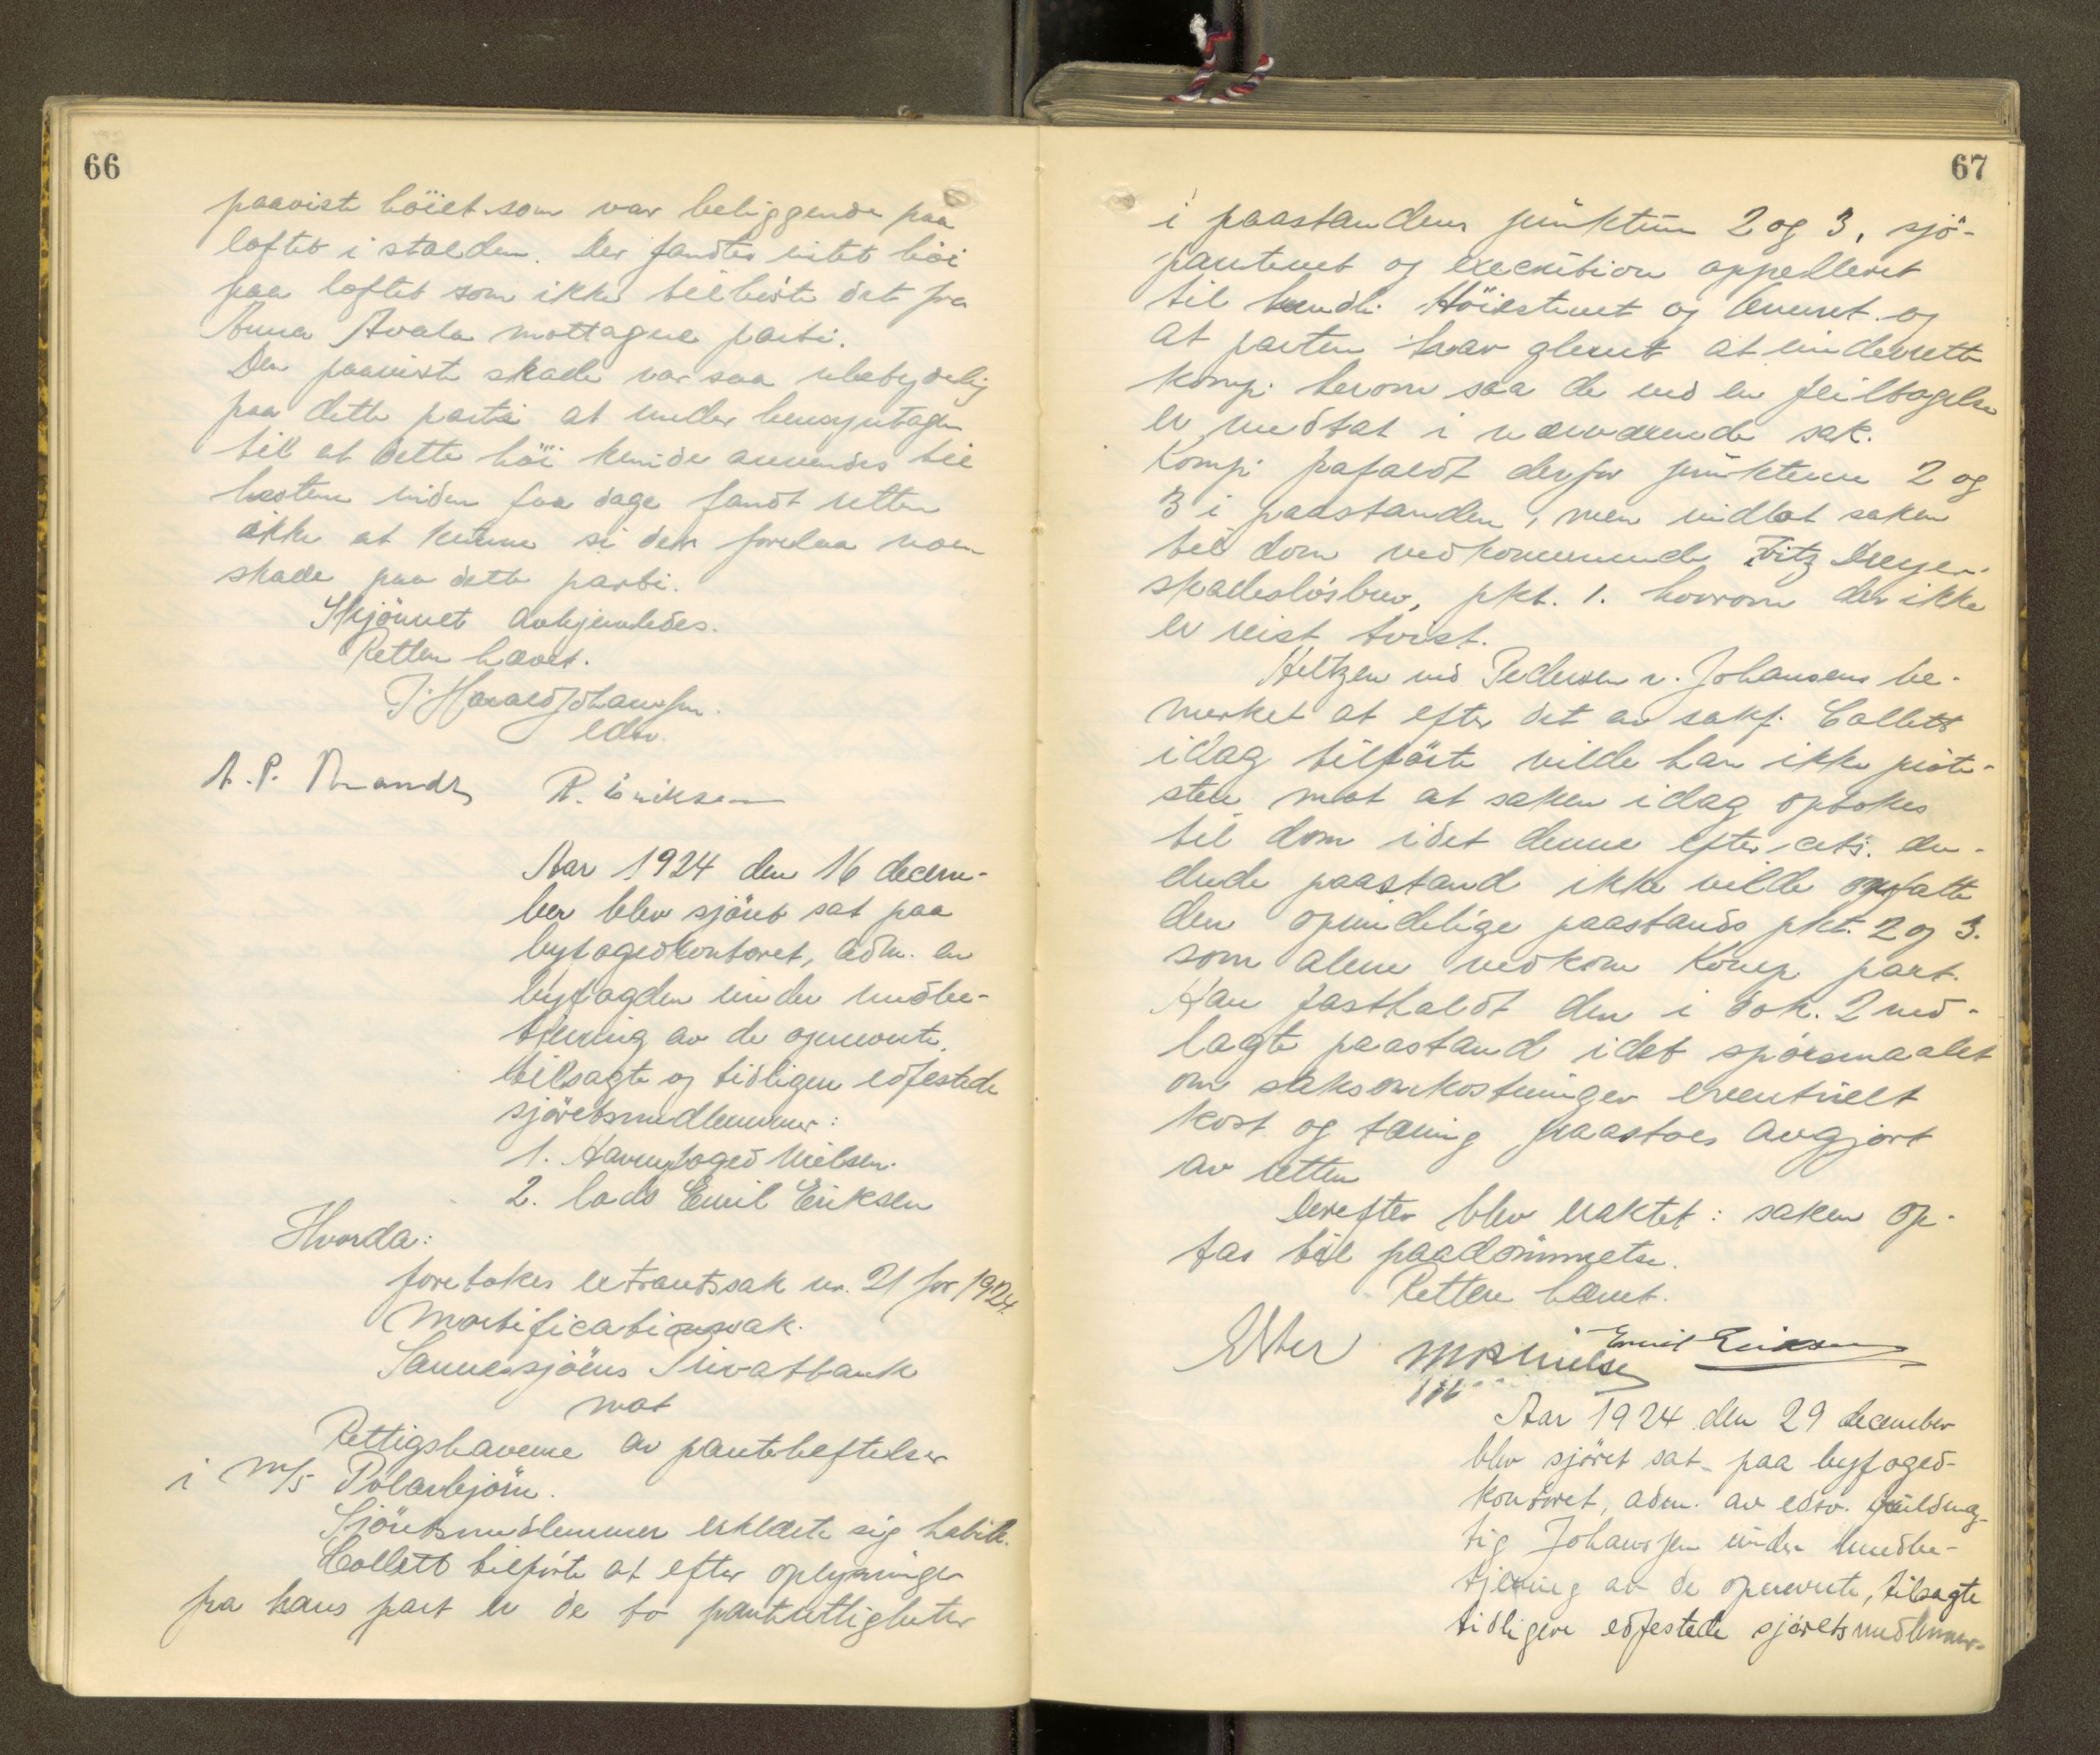 66
paaviste höiet som var beliggende paa
loftet i stalden. Der fandtes intet höi
paa loftet som ikke tilhörte det fra
Anna Avala mottagne parti.
Den paaviste skade var saa ubetydelig
paa dette parti at under hensyntagen
til at dette höi kunde anvendes til
hestene inden faa dage fandt retten
ikke at kunne si der forelaa noen
skade paa dette parti.
Skjönnet avhjemledes.
Retten hævet.
J. Harald Johanssen
edsv.
A. P. R. Eriksen
Aar 1924 den 16 decem-
ber blev sjöret sat paa
byfogedkontoret, adm. av
byfogden under medbe-
tjening av de opnevnte,
tilsagte og tidligere edfestede
sjöretsmedlemmer:
1. Havnefoged Nielsen.
2. lods Emil Eriksen
Hvorda:
foretokes extraretssak nr. 21 for 1924.
Mortificationssak.
Sannessjöens Privatbank
mot
Rettigshaverne av panteheftelser
i M/S Polarbjörn.
Sjöretsmedlemmer erklærte sig habile.
Collett tilförte at efter oplysninger
fra hans part er de to pantrettigheter
67
i paastandens punktum 2 og 3, sjö-
panteret og execution appelleret
til Höiesteret og og
at parten har glemt at underrette
Komp. herom saa de ved en feiltagelse
er medtat i nærværende sak.
Komp. frafaldt derfor punkterne 2 og
3 i paastanden, men indlot saken
til dom vedkommende Fritz Dreyer
skadeslösbrev, pkt. 1. hvorom der ikke
er reist tvist.
Heltzen ved Pedersen r. Johansens be-
merket at efter det av sakf. Collett
idag tilförte vilde han ikke prote-
stere mot at saken idag optokes
til dom idet denne efter cit. æn-
drede paastand ikke vilde omfatte
den oprindelige paastands pkt. 2 og 3.
som alene vedkom Komp part.
Han fastholdt den i dok. 2 ned-
lagte paastand idet spörsmaalet
om saksomkostninger eventuelt
kost og tæring paastaes avgjort
av retten
Derefter blev eraktet: saken op-
tas til paadömmelse.
Retten hævet.
M R Nielsen Emil Eriksen
Aar 1924 den 29 december
blev sjöret sat paa byfoged-
kontoret, adm. av edsv. fuldmæg-
tig Johanssen under medbe-
tjening av de opnevnte, tilsagte
tidligere edfestede sjöretsmedlemmer